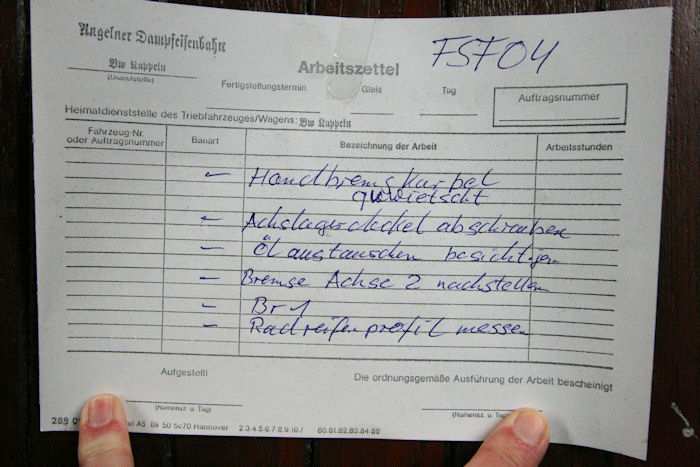 Angelner Dampfeisenbahn
FSF04
Bw Kappeln
(Dienststelle)
Arbeitszettel
Fertigstellungstermin Gleis Tag
Auftragsnummer
Heimatdienststelle des Triebfahrzeuges/Wagens: Bw Kappeln
Fahrzeug-Nr. oder Auftragsnummer Bauart Bezeichnung der Arbeit Arbeitsstunden
- Handbremskurbel
quietscht
- Achslagerdeckel abschrauben
- Öl austauschen besichtigen
- Bremse Achse 2 nachstellen
- Br 1
- Radreifenprofil messen
Aufgestellt
Die ordnungsgemäße Ausführung der Arbeit bescheinigt
(Namensz. u. Tag) (Namensz. u. Tag)
Hannover